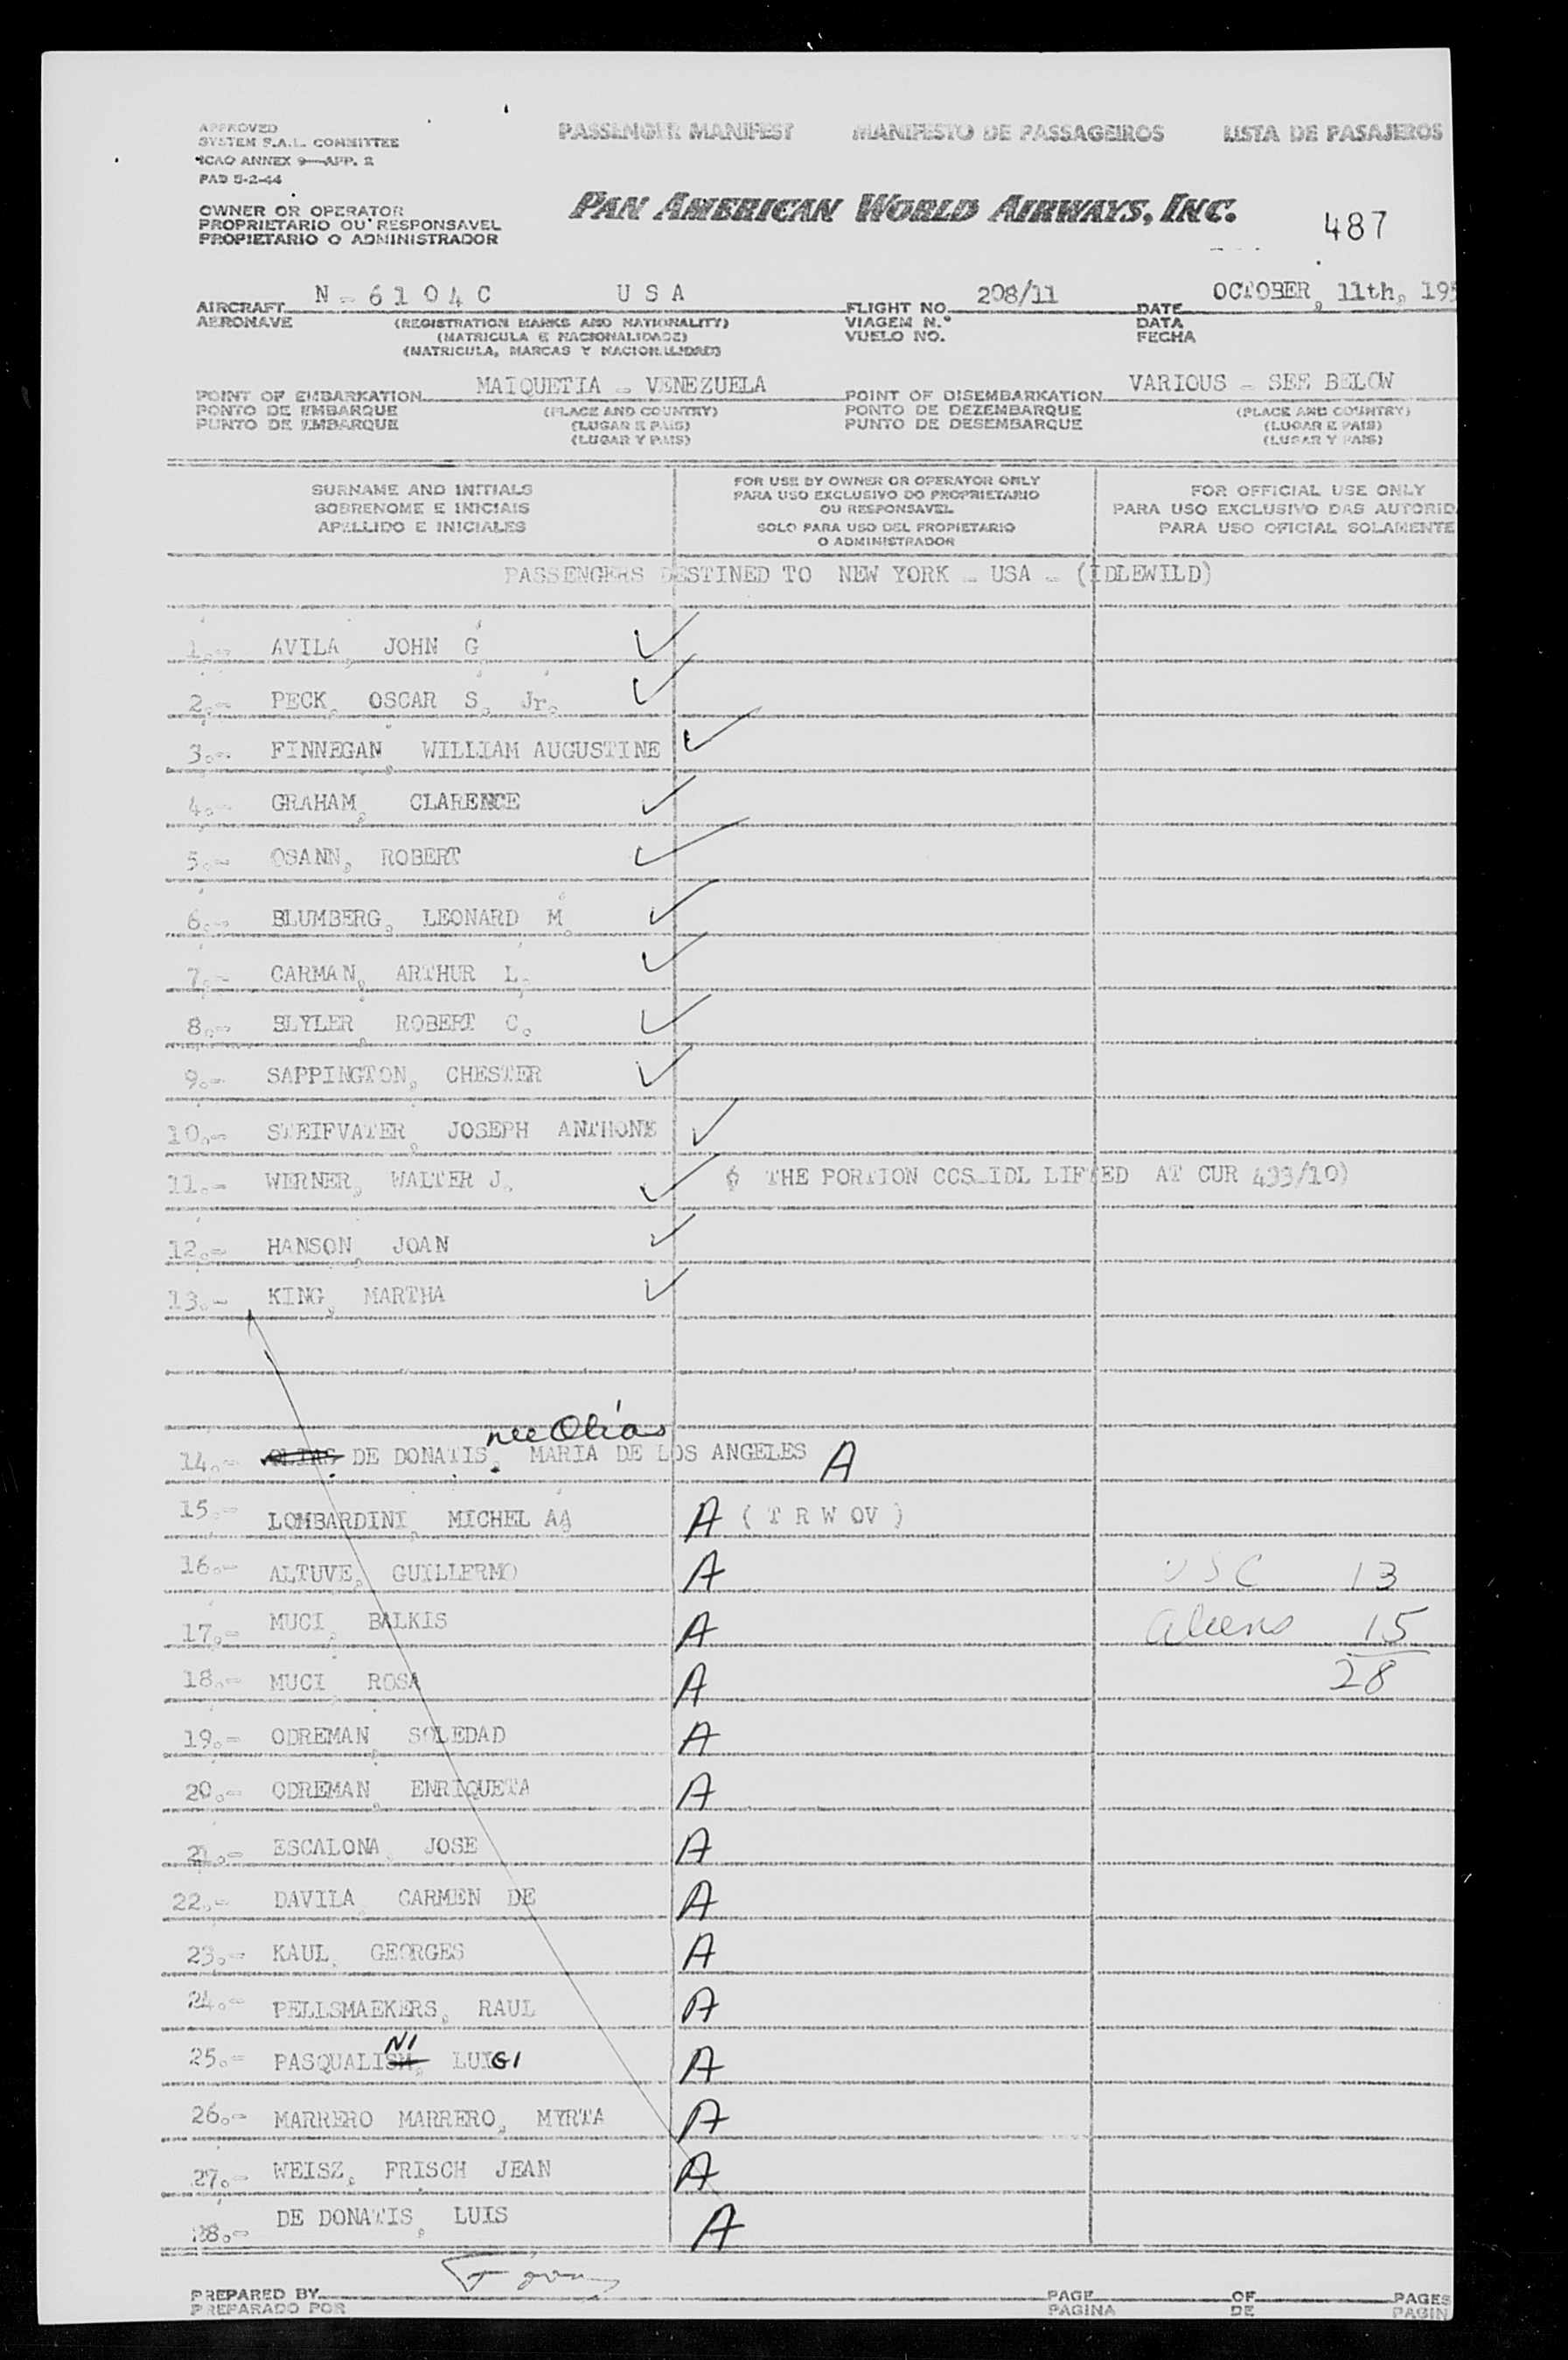 APPROVED
SYSTEM F.A.L. COMMITTEE
ICAO ANNEX 9—APP. 2
PAD 5-2-44
PASSENGER MANIFEST MANIFESTO DE PASSAGEIROS LISTA DE PASAJEROS
OWNER OR OPERATOR
PROPRIETARIO OU RESPONSAVEL
PROPIETARIO O ADMINISTRADOR
PAN AMERICAN WORLD AIRWAYS, INC.
487
AIRCRAFT N-6104C USA FLIGHT NO. 208/11 DATE OCTOBER, 11th, 195
AERONAVE (REGISTRATION MARKS AND NATIONALITY) VIAGEM N.° DATA
(MATRICULA E NACIONALIDADE) VUELO NO. FECHA
(MATRICULA, MARCAS Y NACIONALIDAD)
POINT OF EMBARKATION MAIQUETIA - VENEZUELA POINT OF DISEMBARKATION VARIOUS - SEE BELOW
PONTO DE EMBARQUE (PLACE AND COUNTRY) PONTO DE DEZEMBARQUE (PLACE AND COUNTRY)
PUNTO DE EMBARQUE (LUGAR E PAIS) PUNTO DE DESEMBARQUE (LUGAR E PAIS)
(LUGAR Y PAIS) (LUGAR Y PAIS)
SURNAME AND INITIALS
SOBRENOME E INICIAIS
APELLIDO E INICIALES
FOR USE BY OWNER OR OPERATOR ONLY
PARA USO EXCLUSIVO DO PROPRIETARIO
OU RESPONSAVEL
SOLO PARA USO DEL PROPIETARIO
O ADMINISTRADOR
FOR OFFICIAL USE ONLY
PARA USO EXCLUSIVO DAS AUTORID
PARA USO OFICIAL SOLAMENTE
PASSENGERS DESTINED TO NEW YORK - USA - (IDLEWILD)
1.- AVILA, JOHN G. ✓
2.- PECK, OSCAR S. Jr. ✓
3.- FINNEGAN, WILLIAM AUGUSTINE ✓
4.- GRAHAM, CLARENCE ✓
5.- OSANN, ROBERT ✓
6.- BLUMBERG, LEONARD M. ✓
7.- CARMAN, ARTHUR L. ✓
8.- BLYLER, ROBERT C. ✓
9.- SAPPINGTON, CHESTER ✓
10.- STEIFVATER, JOSEPH ANTHONE ✓
11.- WERNER, WALTER J. ✓ ( THE PORTION CCS-IDL LIFTED AT CUR 433/10)
12.- HANSON, JOAN ✓
13.- KING, MARTHA ✓
nee Olias
14.- OLIAS DE DONATIS, MARIA DE LOS ANGELES A
15.- LOMBARDINI, MICHEL AA A ( T R W OV )
16.- ALTUVE, GUILLERMO A USC 13
17.- MUCI, BALKIS A aliens 15
18.- MUCI, ROSA A 28
19.- ODREMAN, SOLEDAD A
20.- ODREMAN, ENRIQUETA A
21.- ESCALONA, JOSE A
22.- DAVILA, CARMEN DE A
23.- KAUL, GEORGES A
24.- PELLSMAEKERS, RAUL A
NI
25.- PASQUALISM, LUIGI A
26.- MARRERO MARRERO, MYRTA A
27.- WEISZ, FRISCH JEAN A
28.- DE DONATIS, LUIS A
PREPARED BY PAGE OF PAGES
PREPARADO POR PAGINA DE PAGIN